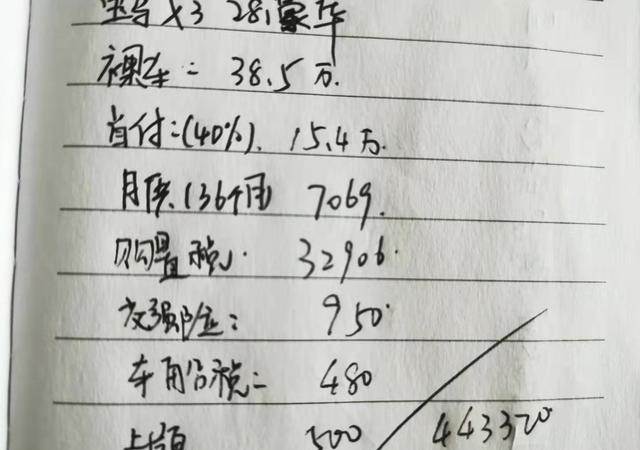 宝马 X3 28i豪华
裸车: 38.5万.
首付:(40%). 15.4万.
月供.(36个月) 7069.
购置税. 32906.
交强险: 950
车船税: 480
上牌 500 443320